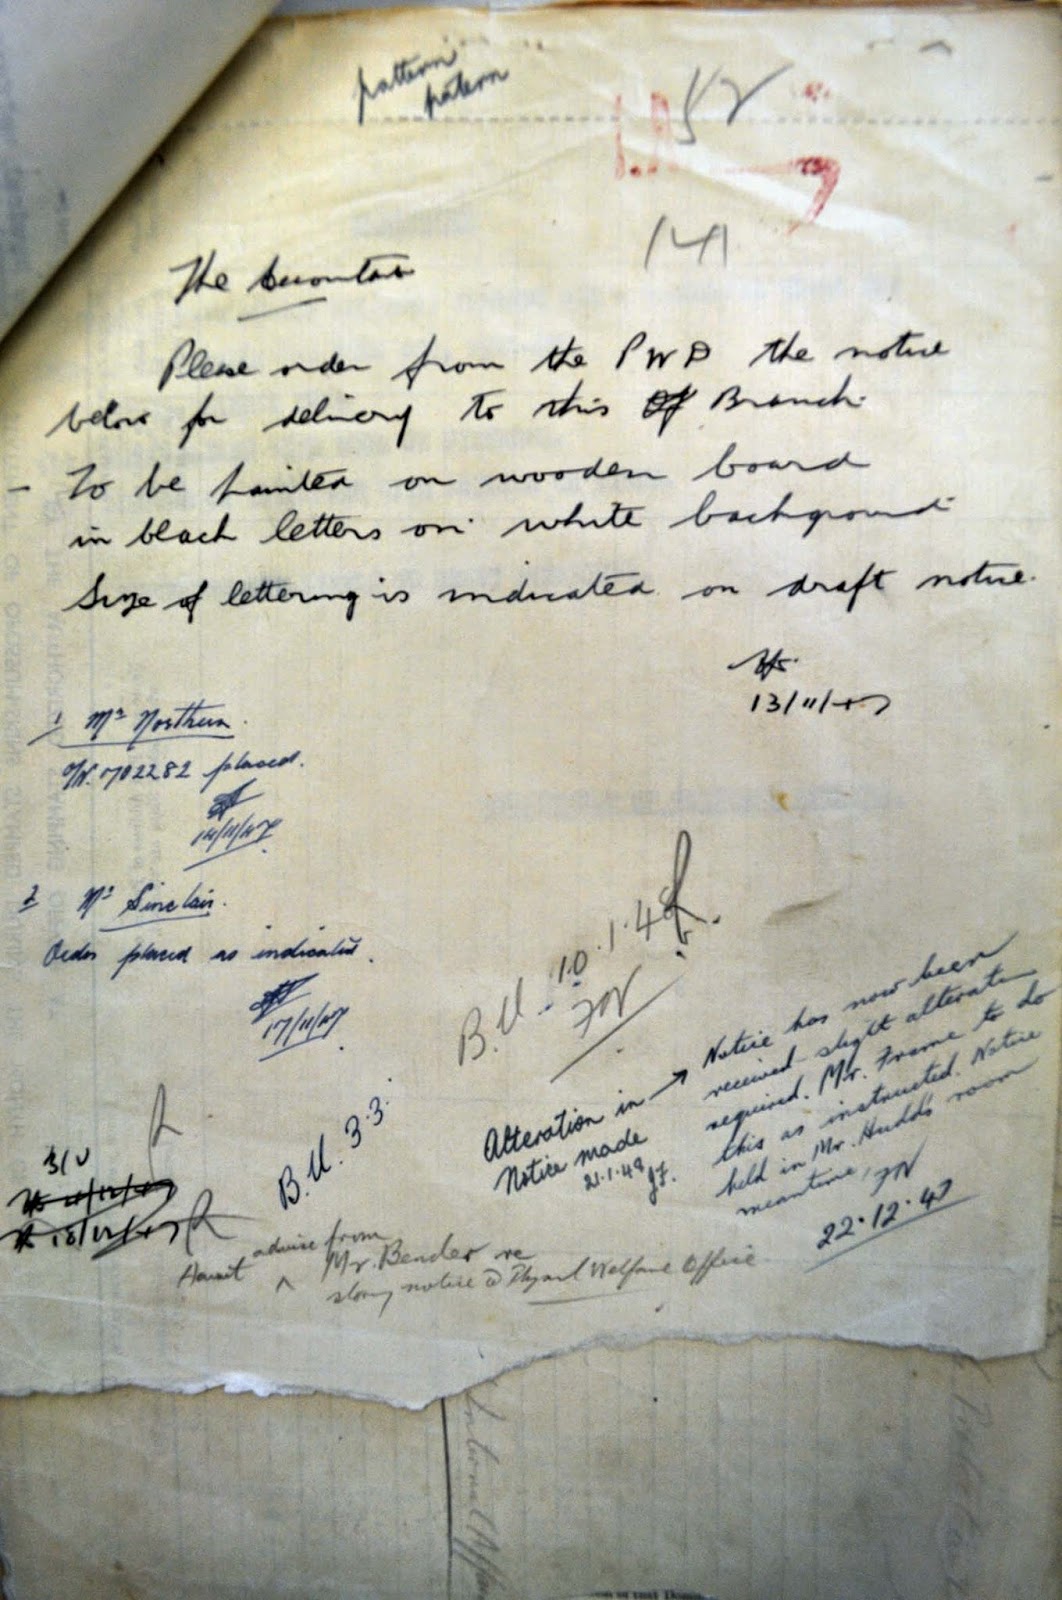 pattern
patern
58
141
The Accountant
Please order from the PWD the notice
below for delivery to this Of Branch.
- To be painted on wooden board
in black letters on white background
Size of lettering is indicated on draft notice.
13/11/47
1 Mr Northern.
O/N. 702282 placed.
14/11/47
2 Mr Sinclair.
Order placed as indicated.
17/11/47
B.U. 10.1.48
Notice has now been
received slight alteration
required. Mr. Frame to do
this as instructed. Notice
held in Mr. Hudd's room
meantime,
22.12.47
Alteration in →
Notice made
21.1.48
B.U. 3.3.
Await advise from
Mr. Bender re
notice @ Welfare Office
Internal Affairs